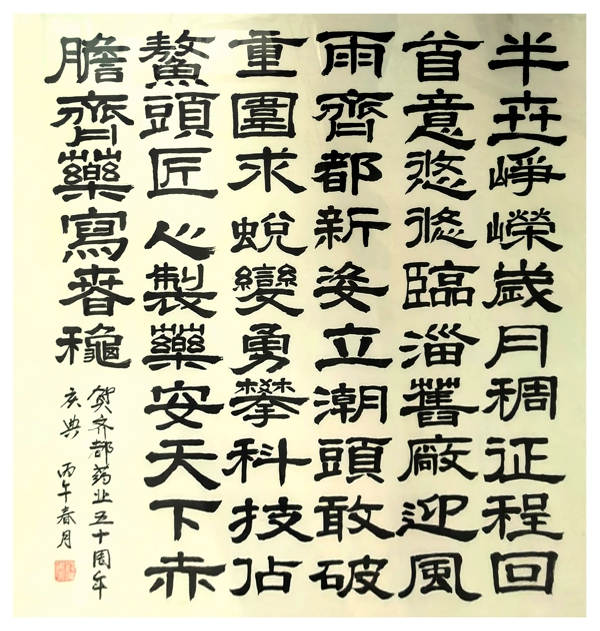 半世崢嶸歲月稠征程回
首意悠悠臨淄舊廠迎風
雨齊都新姿立潮頭敢破
重圍求蛻變勇攀科技佔
鰲頭匠心製藥安天下赤
膽齊藥寫春穐
贺齐都药业五十周年
庆典 丙午春月